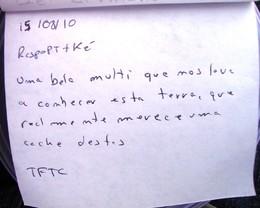 15/08/10
RespoPT+Ké
Uma bela multi que nos leva
a conhecer esta terra, que
realmente merece uma
cache destas
TFTC